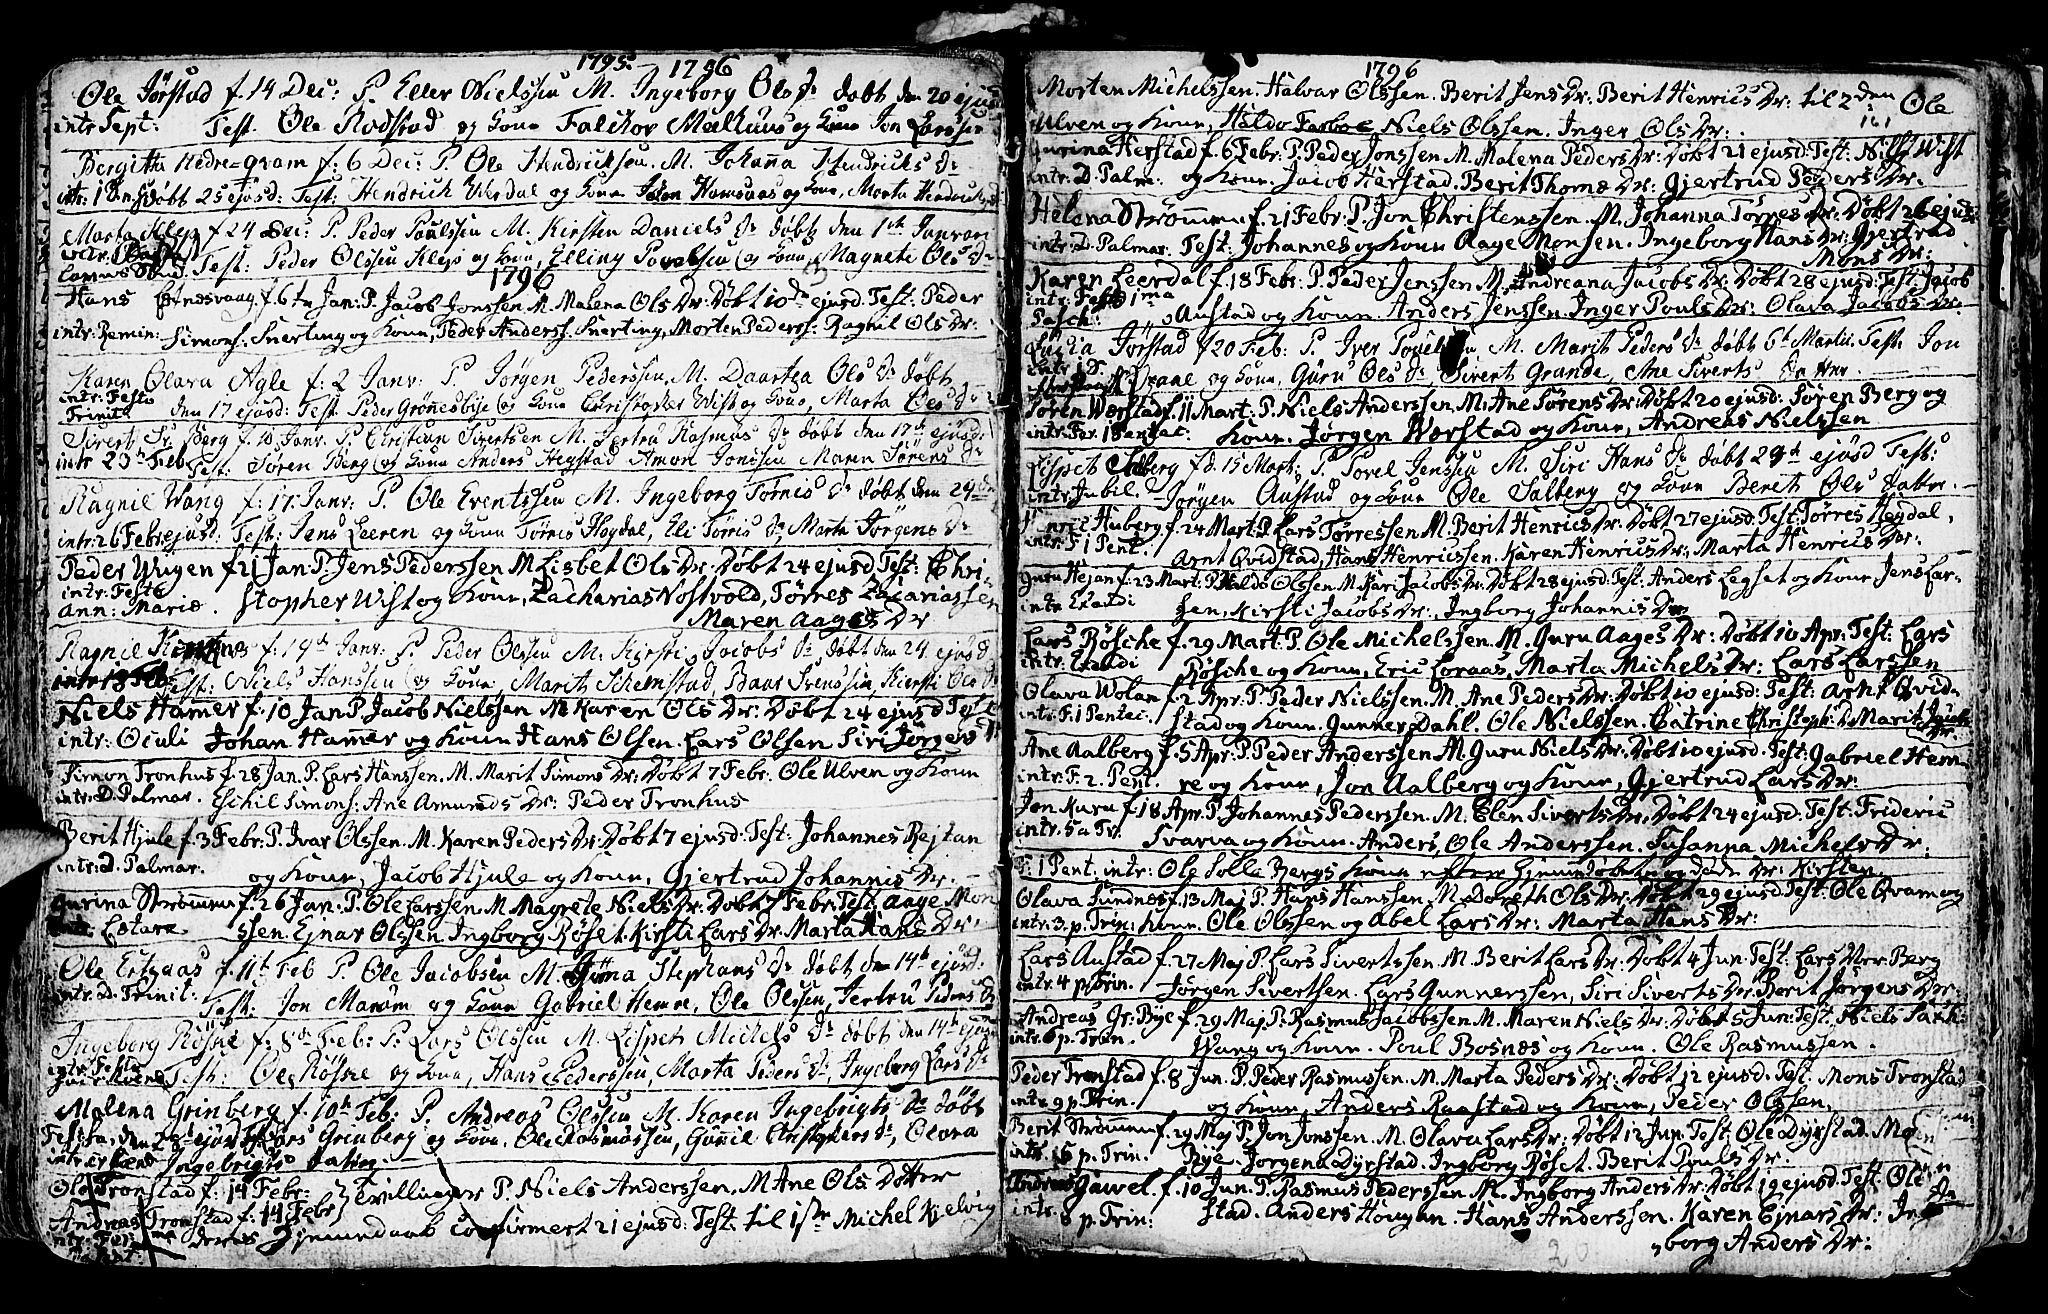 1795. 1796
Ole Jørstad f. 14 Dec: P. Eller Nielssen M. Ingeborg Ols Dr døbt den 20 ejusd
intr. Sept: Test. Ole Rodstad og Kone Falchor og Kone Jon Larssen
Bergitha Hedre=gram f. 6 Dec: P. Ole Hendricksen. M. Johanna Hendricks Dr
intr: Døbt 25 ejusd: Test: Hendrich Ekrdal og Kone og Kone, Marta Hendricks
Marta Klep f 24 Dec: P. Peder Poulssen M. Kirsten Daniels Dr døbt den 1ste Janvari
Test: Peder Olssen Klep og Kone, Elling Povelsen og Kone, Magnete Ols Dr
1796
Hans f. 6te Jan: P. Jacob Jonssen M. Malena Ols Dr: Døbt 10de ejusd. Test: Peder
intr: Remin: Simons. Snerting og Koun, Peder Anderss. Snerting, Morten Pederss: Ragnil Ols Dr:
Karen Olava Agle f. 2 Janv: P. Jørgen Pederssen, M. Daartea Ols Dr døbt
intr: Festo
Trinit: den 17 ejusd: Test Peder Grønesbye og Kone Christopher Wist og Kone, Marta Ols Dr
Sivert Berg f. 10 Janv. P. Christian Sivertsen M. Jertru Rasmus Dr døbt den 17de ejusd:
intr 23 Feb Test: Søren Berg og Kone Anders Hegstad Amon Jonssen Maren Sørens Dr
Ragnil Wang f: 17 Janv: P. Ole Evertssen M. Ingeborg Tørris Dr døbt den 24de
intr: 26 Febr. ejusd: Test: Jens Leeren og Kone Tørris Hogdal, Eli Tørris Dr Marta Jørgens Dr
Peder Wugen f 21 Jan. P. Jens Pederssen M Lisbet Ols Dr. Døbt 24 ejusd Test: Chri-
intr: Festo
ann: Mariæ. stopher Wist og Koun, Zacharias Nostvold, Tørres Zacariassen
Maren Aages Dr
Ragnil f. 14de Janv: P. Peder Olssen M. Kirsti Jacobs Dr døbt den 24 ejusd
Test: Niels Hanssen og Kone, Marit Schemstad, Baar Svenssen, Kiersti Ols Dr
Niels Hamer f. 10 Jan P. Jacob Nielssen M. Karen Ols Dr: Døbt 24 ejusd Test
intr: Oculi Johan Hamer og Koun Hans Olsen. Lars Olsen Siri Jørgens
Simon Tronhus f. 28 Jan. P. Lars Hanssen. M. Marit Simons Dr: Døbt 7 Febr. Ole Ulven og Koun
intr: D. Palmar. Eschil Simons: Ane Amunds Dr: Peder Tronhus
Berit Hjule f. 3 Febr: P. Ivar Olssen. M. Karen Peders Dr: Døbt 7 ejusd: Test: Johannes Rejtan
intr: D. Palmar. og Koun, Jacob Hjule og Koun, Gjertrud Johannis Dr.
Gurina Strømmen f. 26 Jan. P. Ole Larssen. M Magrete Niels Dr: Døbt 7 Febr: Test. Aage Mon
intr: Estare. ssen. Ejnar Olssen. Ingborg Røset. Kirsti Lars Dr. Marta Hans Dr.
Ole f. 11te Feb P. Ole Jacobsen M. Stephans Dr døbt den 14de ejusd.
intr. D. Trinit: Test: Jon Maroim og Kone Gabriel Hemre, Ole Olssen, Jertru Peders Dr
Ingeborg Røske f: 8de Feb: P. Lars Olssen M. Lispet Michels Dr døbt den 14de ejusd
intr. Festo Test: Ole Røske og Kone, Hans Pederssen, Marta Peders Dr, Ingeborg Lars Dr
Malena Grinberg f. 10de Feb: P. Andreas Olssen M. Karen Ingebrigts Dr døbt
Lars Grinberg og Kone. Ole Rasmussen, Gunil Christophers Dr, Olava
Ingebrigts Datter.
Ole Tronstad f: 14 Febr:
Andreas Tronstad f: 14 Febr } Tvillinger P. Niels Anderssen. M Ane Ols Dotter
deres Hjemmedaab confirmert 21 ejusd. Test: til 1ste Michel Kielvig
1796
Morten Michelssen. Halvar Olssen. Berit Jens Dr: Berit Henrics Dr: til 2den Ole
Ulven og Koun, Haldo Niels Olssen. Inger Ols Dr:
Gurina Herstad f. 6 Febr: P. Peder Jonssen. M. Malena Peders Dr: Døbt 21 ejusd: Test: Nills Wist
intr: D. Palm: og Koun. Jacob Harstad. Berit Thomæ Dr: Gjertrud Peders Dr.
Helena Strømmen f. 21 Febr: P. Jon Christenssen. M. Johanna Tørres Dr: Døbt 26 ejusd:
intr: D. Palmar. Test: Johannes og Koun Aage Monsen. Ingeborg Hans Dr: Gjertrud
Mons Dr:
Karen Leerdal f. 18 Febr: P. Peder Jenssen M. Andreana Jacobs Dr: Døbt 28 ejusd: Test: Jacob
intr: Festo 1ma
Pasch: Austad og Koun. Anders Jenssen. Inger Pouls Dr: Olava Jacobs Dr
Jørstad f 20 Feb: P. Iver Povelssen, M. Marit Peders Dr døbt 6te Martii: Test: Jon
og Kone, Guru Ols Dr, Sivert Grande, Ane Siverts
Søren Wærstad f. 11 Mart: P. Niels Anderssen. M. Ane Sørens Dr: Døbt 20 ejusd: Søren Berg og
intr: Koun. Jørgen Wærstad og Koun, Andreas Nielssen
Lispet Salberg f d. 15 Mart: P. Povel Jenssen M. Siri Hans Dr døbt 28de ejusd Test:
intr Jubil. Jørgen Austad og Kone Ole Salberg og Kone Beret Ols Datter.
Henric Huberg f. 24 Mart. P. Lars Tørressen. M Berit Henrics Dr: Døbt 27 ejusd: Test: Tørres Hegdal,
intr: F. 1 Pent. Arnt Qvistad, Hans Henricssen. Karen Henrics Dr: Marta Henrics Dr:
Guru Hejan f. 23 Mart: P. Haldo Olssen. M. Kari Jacobs Dr: Døbt 28 ejusd: Test: Anders Legset og Koun Jens Lar-
intr Exaudi sen, Kirsti Jacobs Dr:, Ingborg Johannis Dr
Lars Røsche f. 29 Mart: P. Ole Michelssen. M. Guru Aages Dr: Døbt 10 Apr: Test: Lars
intr: Exaudi Røsche og Koun, Eric Loraas, Marta Michels Dr: Lars Larssen
Olava Wolan f. 2 Apr: P. Peder Nielssen. M. Ane Peders Dr: Døbt 10 ejusd: Test: Arnt Qvid-
intr. F. 1 Pentec. stad og Koun. Gunner Dahl. Ole Nielssen. Catrine Christoph: Dr Marit
Ane Aalberg f. 5 Apr: P. Peder Anderssen. M. Guru Niels Dr: Døbt 10 ejusd: Test: Gabriel Hem-
intr. F. 2. Pent. re og Koun, Jon Aalberg og Koun, Gjertrud Lars Dr:
Jon Kuru f. 18 Apr. P. Johannes Pederssen. M. Elen Siverts Dr: Døbt 24 ejusd: Test: Frideric
intr. 5 a Tr. Svarva og Koun. Anders, Ole Anderssen. Susanna Michels Dr.
F: 1 Pent. intr: Ole Solle Bergs Koun efter Hjemmedøbt og døde Dr: Kirsten
Olava Sundnes f. 13 Maj P. Hans Hanssen. M. Doreth Ols Dr: Døbt 29 ejusd: Test: Ole Qvam og
intr: 3. p. Trin: Koun. Ole Olssen og Abel Lars Dr: Marta Hans Dr:
Lars Austad f. 27 Maj P. Lars Sivertssen. M. Berit Lars Dr: Døbt 4 Jun: Test: Lars Berg
intr: 4 p. Trin. Jørgen Sivertsen. Lars Gunnerssen, Siri Siverts Dr. Berit Jørgens Dr
Andreas Gr: Bye f. 29 Maj P: Rasmus Jacobssen. M. Maren Niels Dr: Døbt 5 Jun: Test. Niels
intr: 6 p. Trin. Wang og Koun. Poul Bosnæs og Koun. Ole Rasmussen.
Peder Tronstad f. 8 Jun. P. Peder Rasmussen. M. Marta Peders Dr: Døbt 12 ejusd: Test. Mons Tronstad
intr: 9 p. Trin. og Koun, Anders Raastad og Koun, Peder Olssen.
Berit Strømmen f. 29 Maj P. Jon Jonssen. M. Olava Lars Dr: Døbt 12 Jun. Test: Ole Dyrstad.
intr: 5 p. Trin. Rye. Jorgena Dyrstad. Ingborg Røset. Berit Pouls Dr.
Andreas Gawel. f. 10 Jun. P. Rasmus Pederssen. M. Ingborg Anders Dr: Døbt 19 ejusd. Test. Ole
intr. 8 p. Trin: stad. Anders Hougan. Hans Anderssen. Karen Ejnars Dr: In
borg Anders Dr:
20